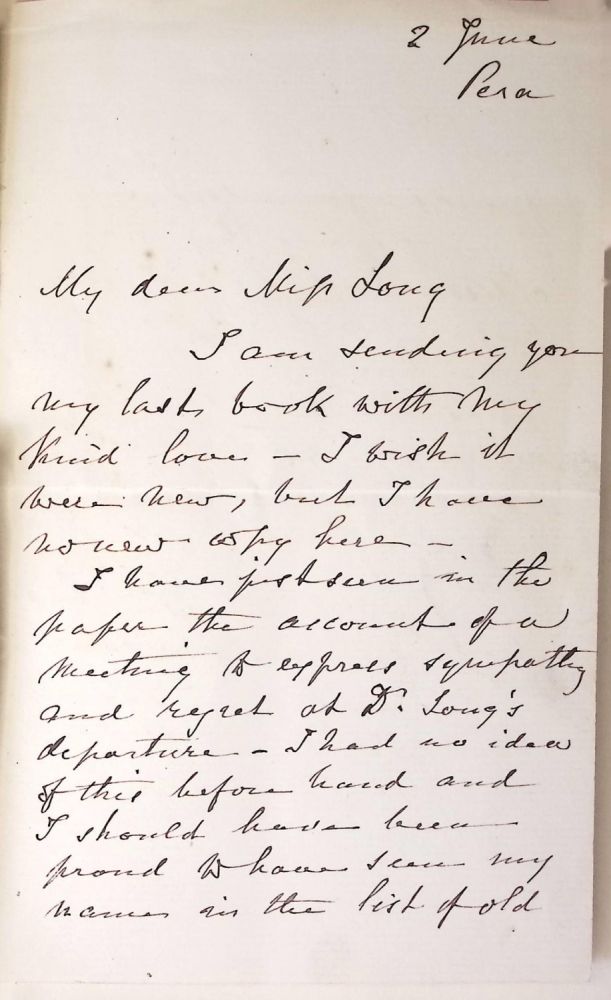 2 June
Pera
My dear Miss Long
I am sending you
my last book with my
kind love - I wish it
were new, but I have
no new copy here -
I have just seen in the
paper the account of a
meeting to express sympathy
and regret at Dr. Long's
departure - I had no idea
of this before hand and
I should have been
proud to have seen my
name in the list of old